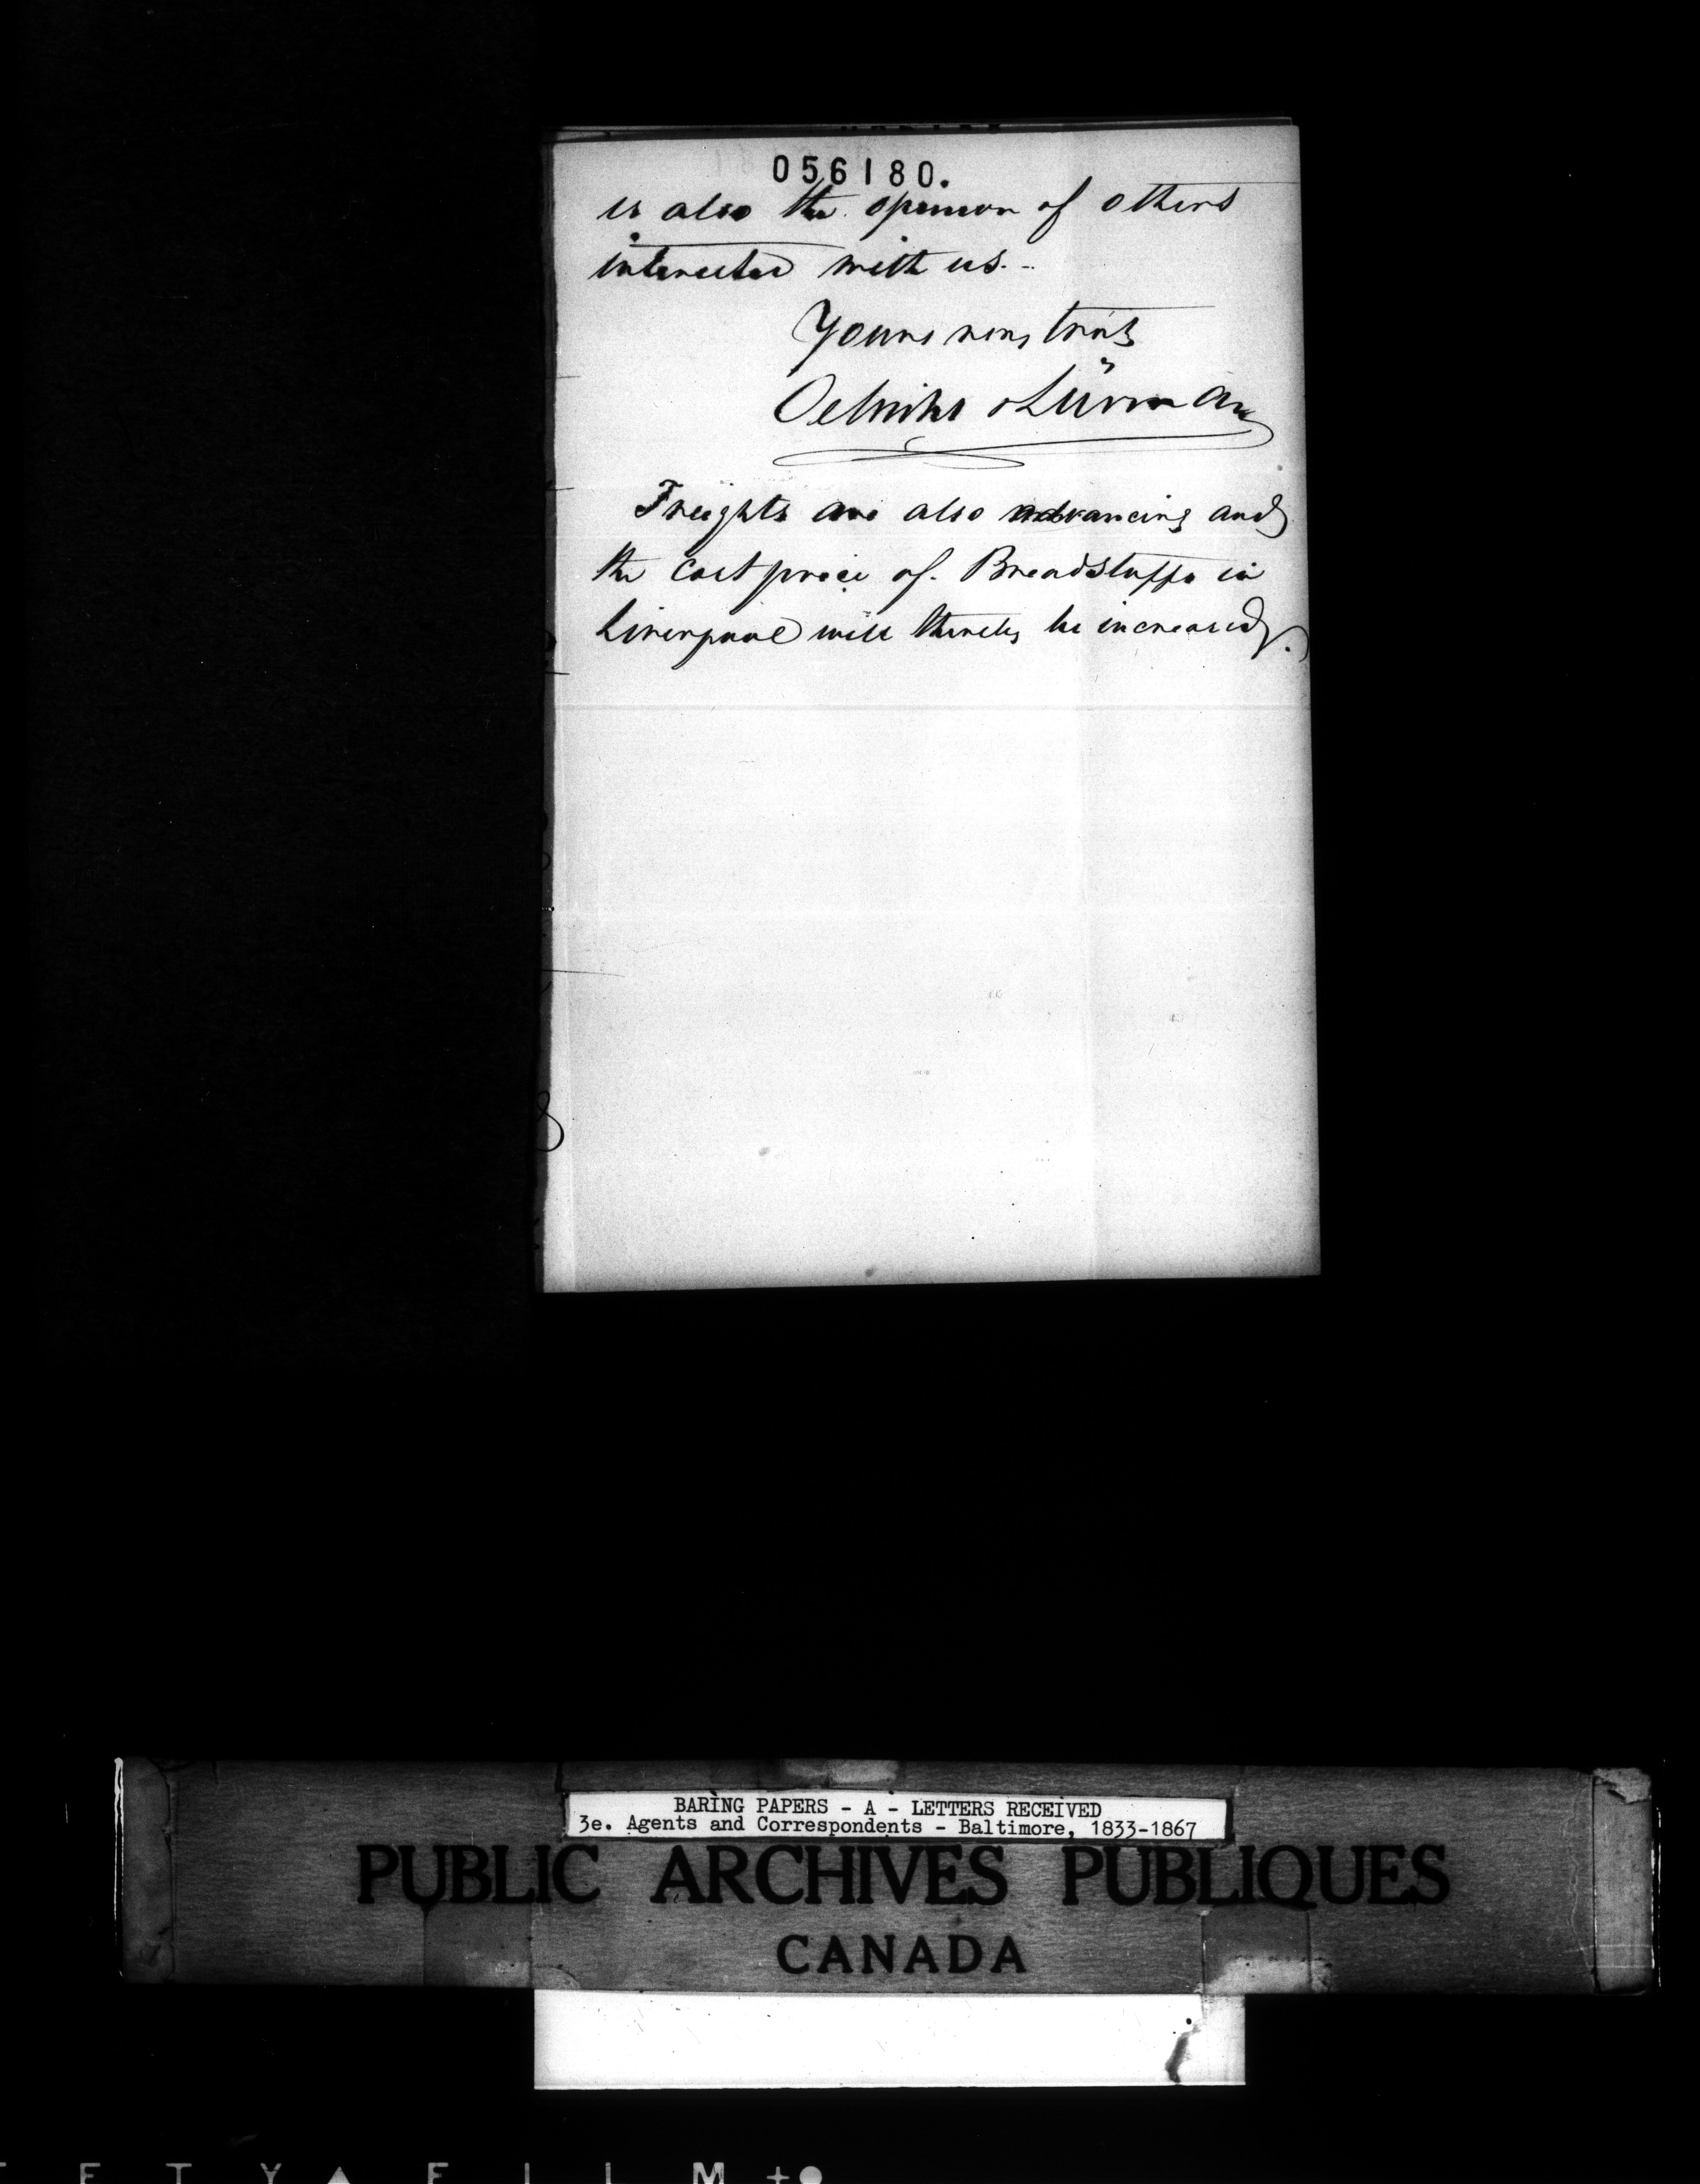 056180.
is also the opinion of others
interested with us. -
Yours very truly
Oelrichs & Lürman
Freights are also advancing and
the cost price of Breadstuffs in
Liverpool will thereby be increased.
BARING PAPERS - A - LETTERS RECEIVED
3e. Agents and Correspondents - Baltimore, 1833-1867
PUBLIC ARCHIVES PUBLIQUES
CANADA
E T Y ▲ F I L M +●